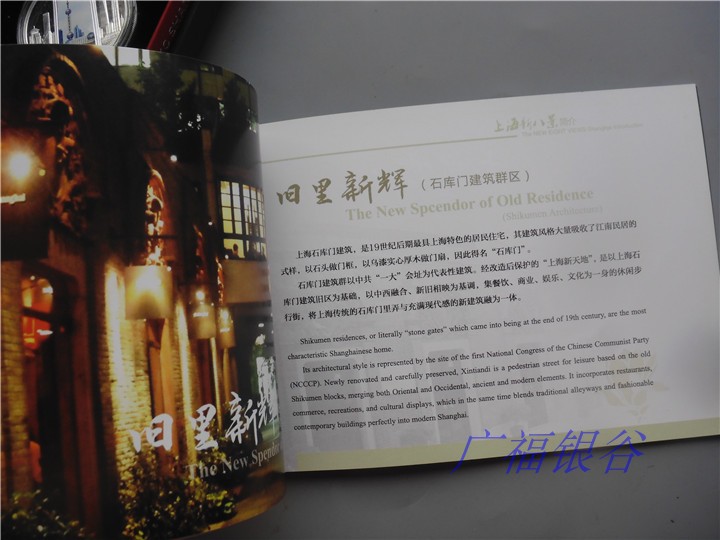 上海新八景简介
旧里新辉（石库门建筑群区）
The New Spcendor of Old Residence
(Shikumen Architecture)
上海石库门建筑，是19世纪后期最具上海特色的居民住宅，其建筑风格大量吸收了江南民居的
式样，以石头做门框，以乌漆实心厚木做门扇，因此得名“石库门”。
石库门建筑群以中共“一大”会址为代表性建筑。经改造后保护的“上海新天地”，是以上海石
库门建筑旧区为基础，以中西融合、新旧相映为基调，集餐饮、商业、娱乐、文化为一身的休闲步
行街，将上海传统的石库门里弄与充满现代感的新建筑融为一体。
Shikumen residences, or literally “stone gates” which came into being at the end of 19th century, are the most
characteristic Shanghainese home.
Its architectural style is represented by the site of the first National Congress of the Chinese Communist Party
(NCCCP). Newly renovated and carefully preserved, Xintiandi is a pedestrian street for leisure based on the old
Shikumen blocks, merging both Oriental and Occidental, ancient and modern elements. It incorporates restaurants,
commerce, recreations, and cultural displays, which in the same time blends traditional alleyways and fashionable
contemporary buildings perfectly into modern Shanghai.
旧里新辉
The New Spendor
广福银谷